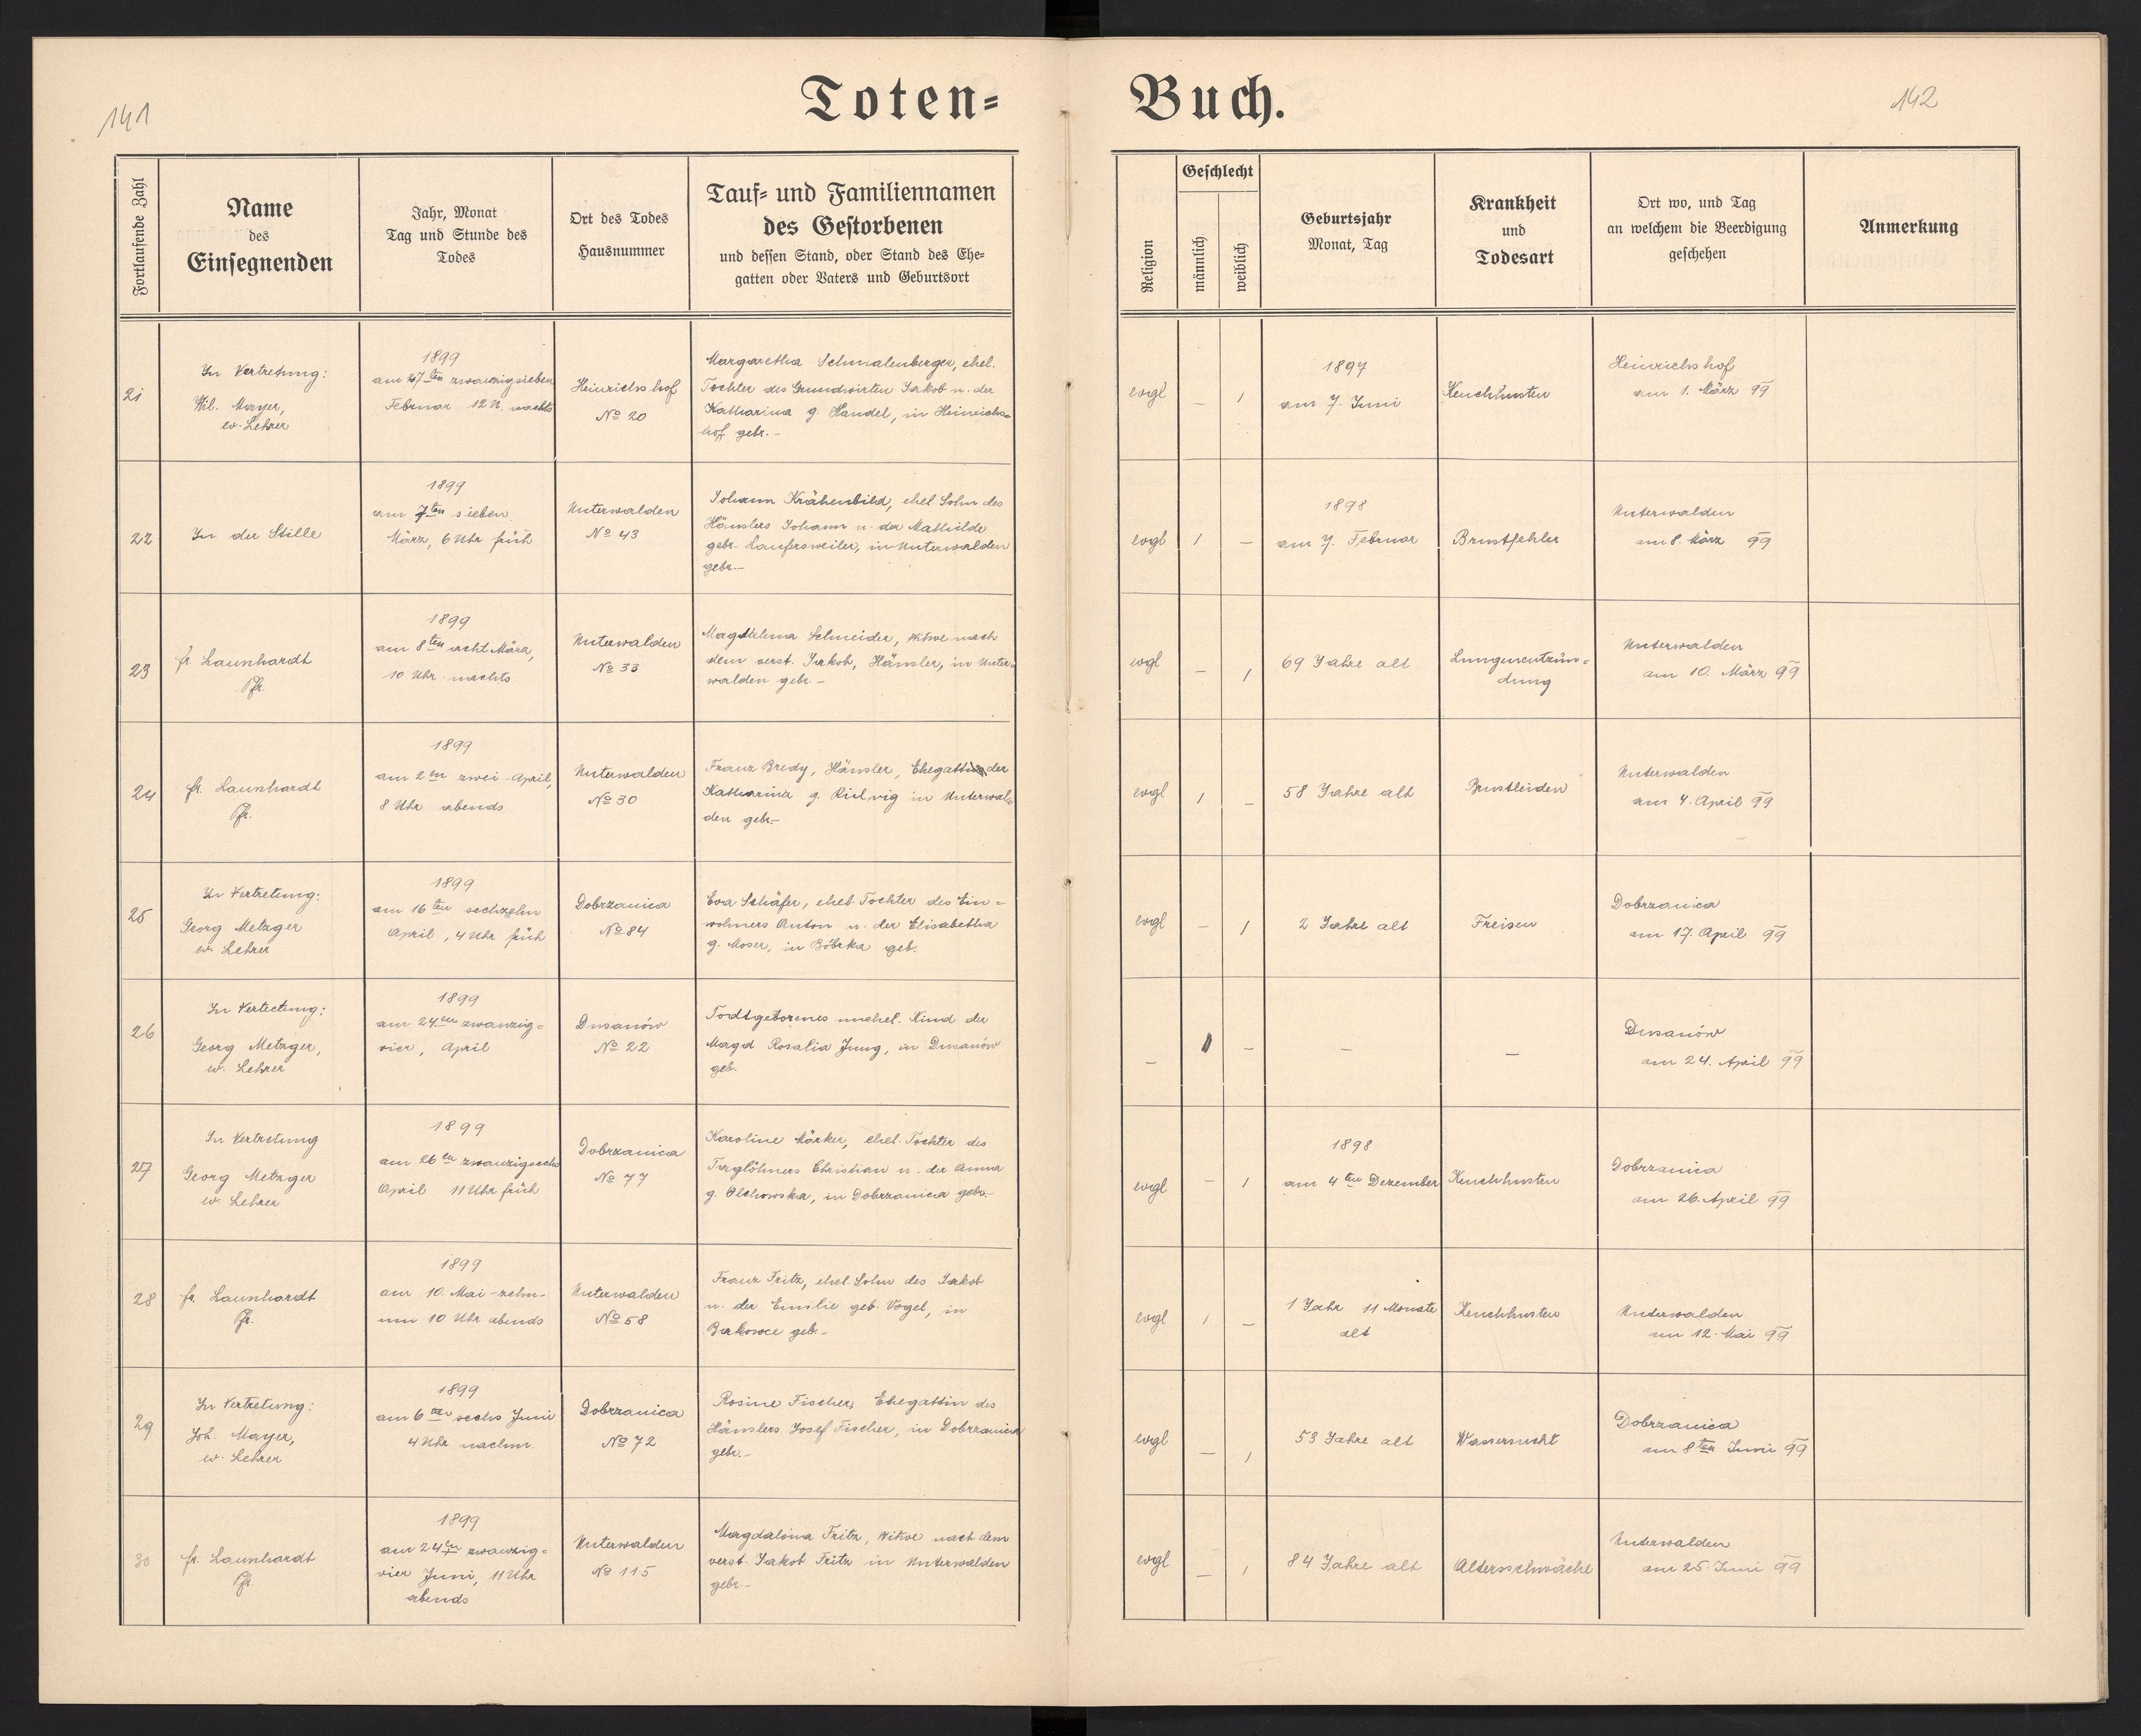 141
Toten=
Buch.
142
Fortlaufende Zahl
Name
des
Einsegnenden
Jahr, Monat
Tag und Stunde des
Todes
Ort des Todes
Hausnummer
Tauf= und Familiennamen
des Gestorbenen
und dessen Stand, oder Stand des Ehe=
gatten oder Vaters und Geburtsort
Religion
Geschlecht
männlich
weiblich
Geburtsjahr
Monat, Tag
Krankheit
und
Todesart
Ort wo, und Tag
an welchem die Beerdigung
geschehen
Anmerkung
21
In Vertretung:
Wil. Mayer,
ev. Lehrer
1899
am 27ten zwanzigsieben
Februar 12 U. nachts
Heinrichshof
No 20
Margaretha Schmalenberger, ehel.
Tochter des Grundwirten Jakob u. der
Katharina g. Handel, in Heinrichs=
hof gebr.-
evgl
-
1
1897
am 7. Juni
Keuchhusten
Heinrichshof
am 1. März 99
22
In der Stille
1899
am 7ten sieben
März, 6 Uhr früh
Unterwalden
No 43
Johann Krähenbild, ehel. Sohn des
Häuslers Johann u. der Mathilde
gebr. Laufersweiler, in Unterwalden
gebr.-
evgl
1
-
1898
am 7. Februar
Brustfehler
Unterwalden
am 8. März 99
23
fr. Launhardt
Pfr.
1899
am 8ten acht März,
10 Uhr nachts
Unterwalden
No 33
Magdalena Schneider, Witwe nach
dem verst. Jakob, Häusler, in Unter-
walden gebr.-
evgl
-
1
69 Jahre alt
Lungenentzün=
dung
Unterwalden
am 10. März 99
24
fr. Launhardt
Pfr.
1899
am 2en zwei April,
8 Uhr abends
Unterwalden
No 30
Franz Bredy, Häusler, Ehegatte der
Katharina g. in Unterwal-
den gebr.-
evgl
1
-
58 Jahre alt
Brustleiden
Unterwalden
am 4. April 99
25
In Vertretung:
Georg Metzger
ev. Lehrer
1899
am 16ten sechzehn
April, 4 Uhr früh
Dobrzanica
No 84
Eva Schäfer, ehel. Tochter des Ein=
wohners Anton u. der Elisabetha
g. Moser, in Bóbrka geb.
evgl
-
1
2 Jahre alt
Freisen
Dobrzanica
am 17. April 99
26
In Vertretung:
Georg Metzger,
ev. Lehrer
1899
am 24en zwanzig=
vier, April
Dusanów
No 22
Todtgeborenes unehel. Kind der
Magd Rosalia Jung, in Dusanów
geb.
-
1
-
-
-
Dusanów
am 24. April 99
27
In Vertretung
Georg Metzger
ev. Lehrer
1899
am 26en zwanzigsechs
April 11 Uhr früh
Dobrzanica
No 77
Karoline Märker, ehel. Tochter des
Taglöhners Christian u. der Anna
g. Olchowska, in Dobrzanica gebr.-
evgl
-
1
1898
am 4ten Dezember
Keuchhusten
Dobrzanica
am 26. April 99
28
fr. Launhardt
Pfr.
1899
am 10. Mai -zehn-
um 10 Uhr abends
Unterwalden
No 58
Franz Fritz, ehel. Sohn des Jakob
u. der Emilie geb. Vogel, in
Borkowce geb.-
evgl
1
-
1 Jahr 11 Monate
alt
Keuchhusten
Unterwalden
am 12. Mai 99
29
In Vertretung:
Joh. Mayer,
ev. Lehrer
1899
am 6ten sechs Juni
4 Uhr nachm.
Dobrzanica
No 72
Rosine Fischer, Ehegattin des
Häuslers Josef Fischer, in Dobrzanica
gebr.-
evgl
-
1
53 Jahre alt
Wassersucht
Dobrzanica
am 8ten Juni 99
30
fr. Launhardt
Pfr.
1899
am 24ten zwanzig=
vier Juni, 11 Uhr
abends
Unterwalden
No 115
Magdalena Fritz, Witwe nach dem
verst. Jakob Fritz in Unterwalden
gebr.-
evgl
-
1
84 Jahre alt
Altersschwäche
Unterwalden
am 25. Juni 99